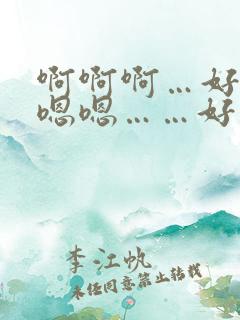 啊啊啊…好
嗯嗯……好
李江帆
未经同意禁止转载